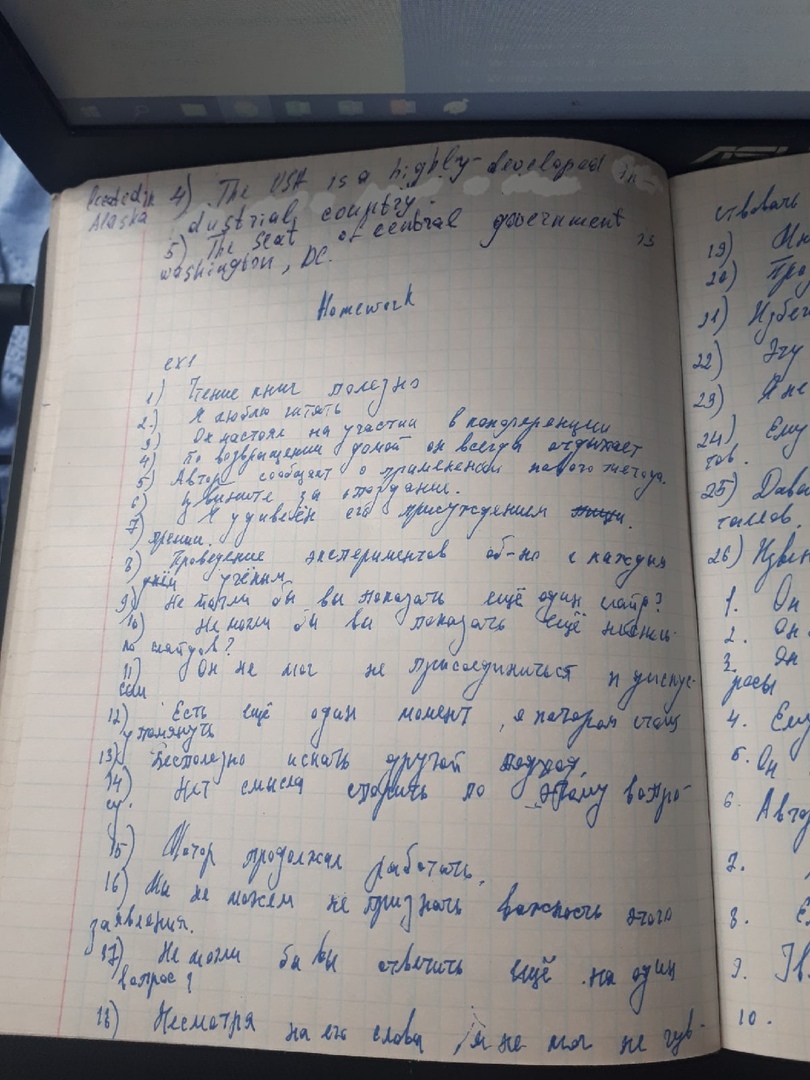 located in 4) The USA is a highly-developed in-
Alaska dustrial country.
5) The seat of central government is
washington, DC.
Homework
ex1
1) Чтение книг полезно
2) Я люблю читать
3) Он настоял на участии в конференции
4) По возвращении домой он всегда отдыхает
5) Автор сообщает о применении нового метода.
6) Извините за опоздание.
7) Я удивлён его присуждением
премии.
8) Проведение экспериментов об-но с каждым
днём учёным
9) Не могли бы вы показать ещё один слайд?
10) Не могли бы вы показать ещё несколь-
ко слайдов?
11) Он не мог не присоединиться к дискус-
сии
12) Есть ещё один момент, о котором стоит
упомянуть
13) Бесполезно искать другой подход.
14) Нет смысла спорить по этому вопро-
су.
15) Мотор продолжал работать.
16) Мы не можем не признать важность этого
заявления.
17) Не могли бы вы ответить ещё на один
вопрос?
18) Несмотря на его слова, я не мог не чув-
ствовать
19)
20)
21)
22) Эту
23) Я не
24) Ему
тов.
25)
26)
1. Он
2. Он
3. Он
росы
4. Ему
5. Он
6.
7.
8.
9.
10.